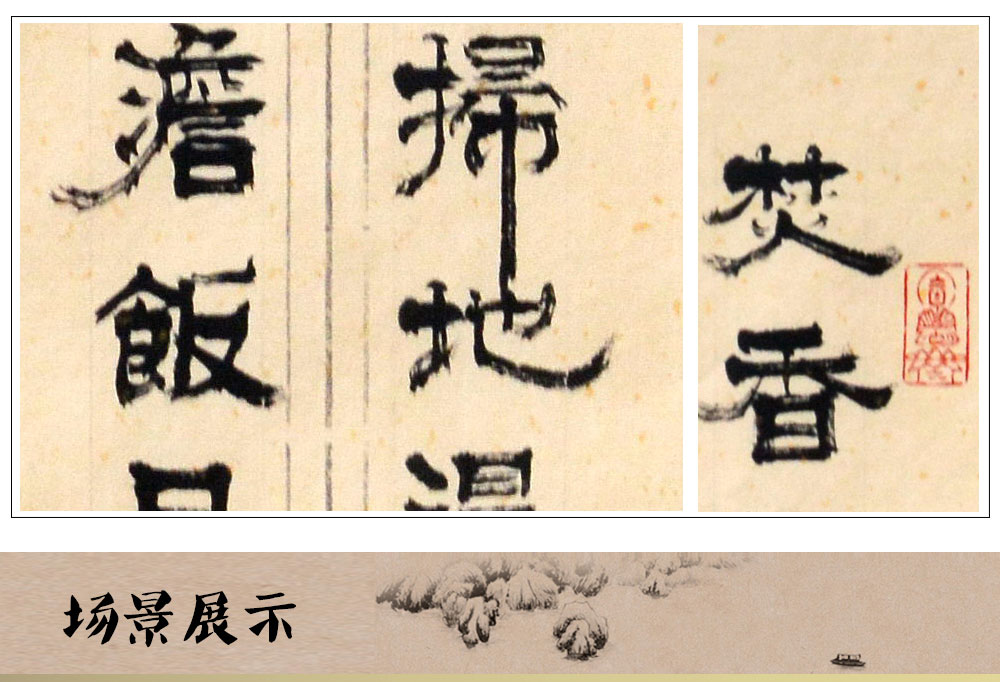 焚香
掃地
澹飯
场景展示